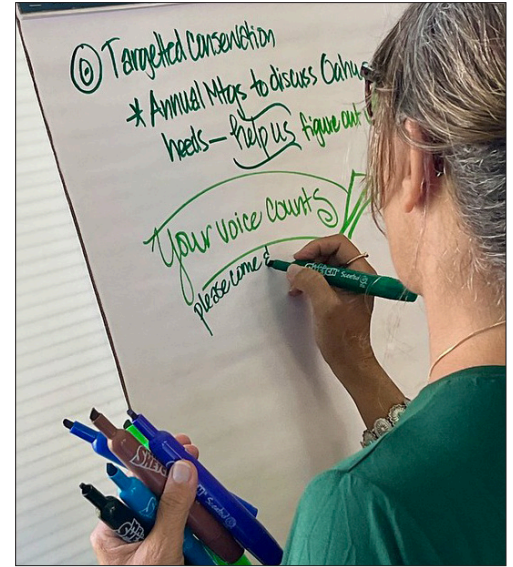 ⑥ Targetted Conservation
* Annual Mtgs to discuss Oahu
needs— help us figure out
Your voice counts
please come &
Scented
Scented